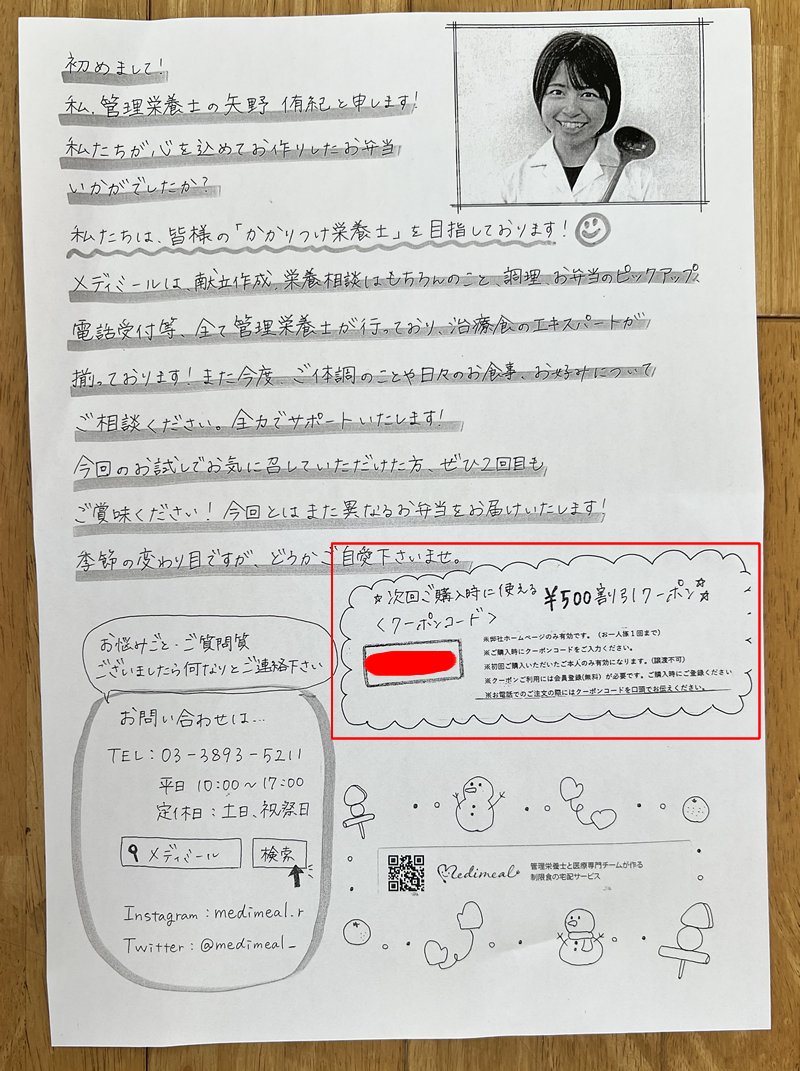 初めまして!
私、管理栄養士の矢野 侑紀と申します!
私たちが心を込めてお作りしたお弁当
いかがでしたか?
私たちは、皆様の「かかりつけ栄養士」を目指しております!
メディミールは、献立作成、栄養相談はもちろんのこと、調理、お弁当のピックアップ、
電話受付等、全て管理栄養士が行っており、治療食のエキスパートが
揃っております!また今度、ご体調のことや日々のお食事、お好みについて
ご相談ください。全力でサポートいたします!
今回のお試しでお気に召していただけた方、ぜひ2回目も
ご賞味ください!今回とはまた異なるお弁当をお届けいたします!
季節の変わり目ですが、どうかご自愛下さいませ。
☆次回ご購入時に使える ¥500割引クーポン☆
<クーポンコード>
※弊社ホームページのみ有効です。(お一人様1回まで)
※ご購入時にクーポンコードをご入力ください。
※初回ご購入いただいたご本人のみ有効になります。(譲渡不可)
※クーポンご利用には会員登録(無料)が必要です。ご購入時にご登録ください
※お電話でのご注文の際にはクーポンコードを口頭でお伝えください。
お悩みごと・ご質問質
ございましたら何なりとご連絡下さい
お問い合わせは...
TEL:03-3893-5211
平日 10:00~17:00
定休日:土日、祝祭日
メディミール 検索
Instagram:medimeal.r
Twitter:@medimeal_
Medimeal
管理栄養士と医療専門チームが作る
制限食の宅配サービス